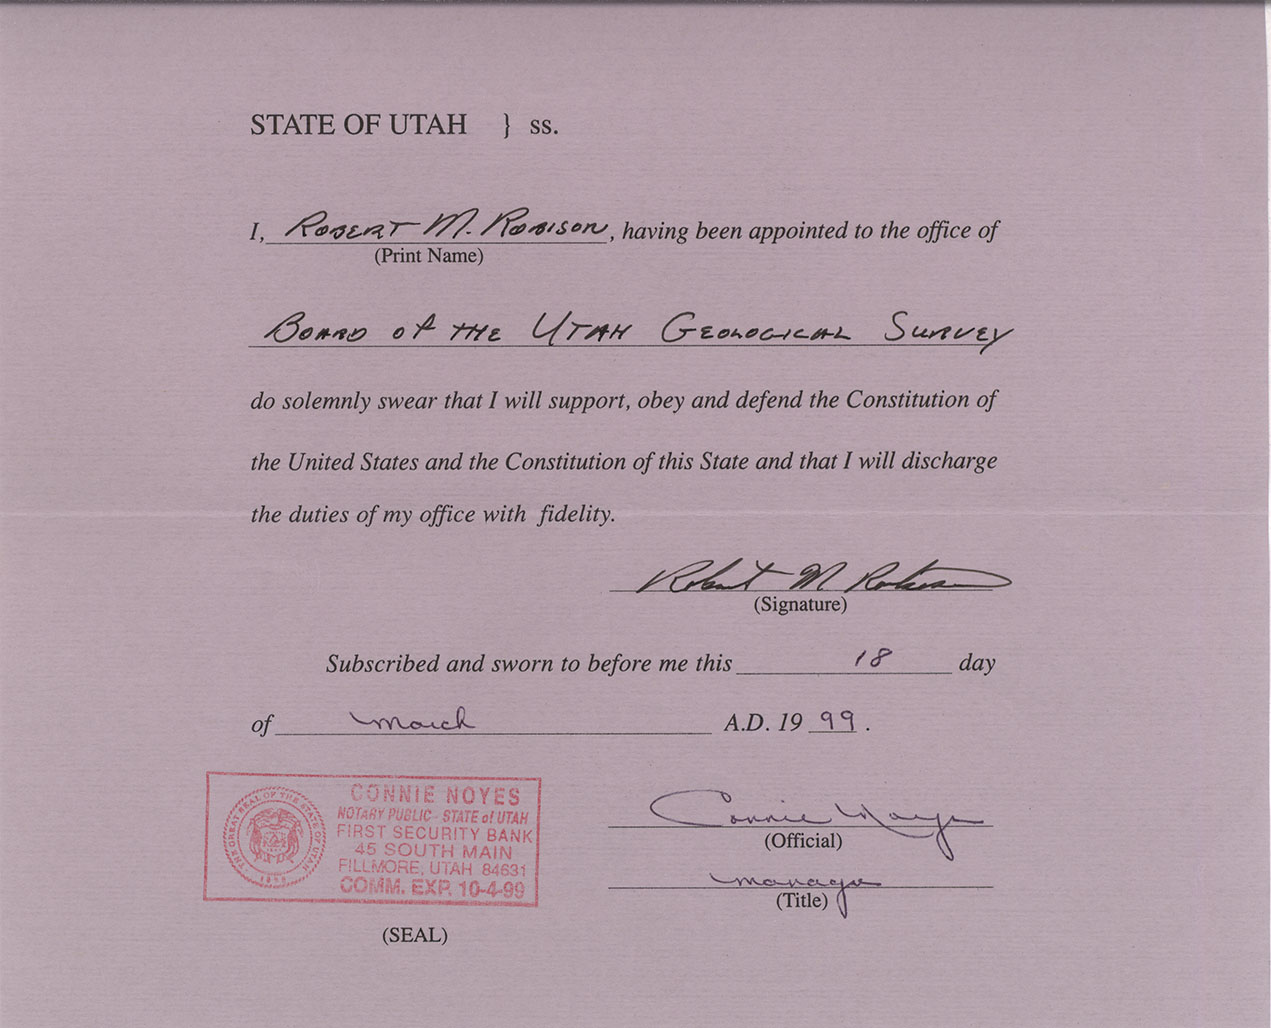 STATE OF UTAH } ss.
I, ROBERT M. ROBISON, having been appointed to the office of
(Print Name)
BOARD OF THE UTAH GEOLOGICAL SURVEY
do solemnly swear that I will support, obey and defend the Constitution of
the United States and the Constitution of this State and that I will discharge
the duties of my office with fidelity.
Robert M Robison
(Signature)
Subscribed and sworn to before me this 18 day
of March A.D. 19 99.
CONNIE NOYES
NOTARY PUBLIC - STATE of UTAH
FIRST SECURITY BANK
45 SOUTH MAIN
FILLMORE, UTAH 84631
COMM. EXP. 10-4-99
THE GREAT SEAL OF THE STATE OF UTAH
1896
(SEAL)
Connie Noyes
(Official)
manager
(Title)